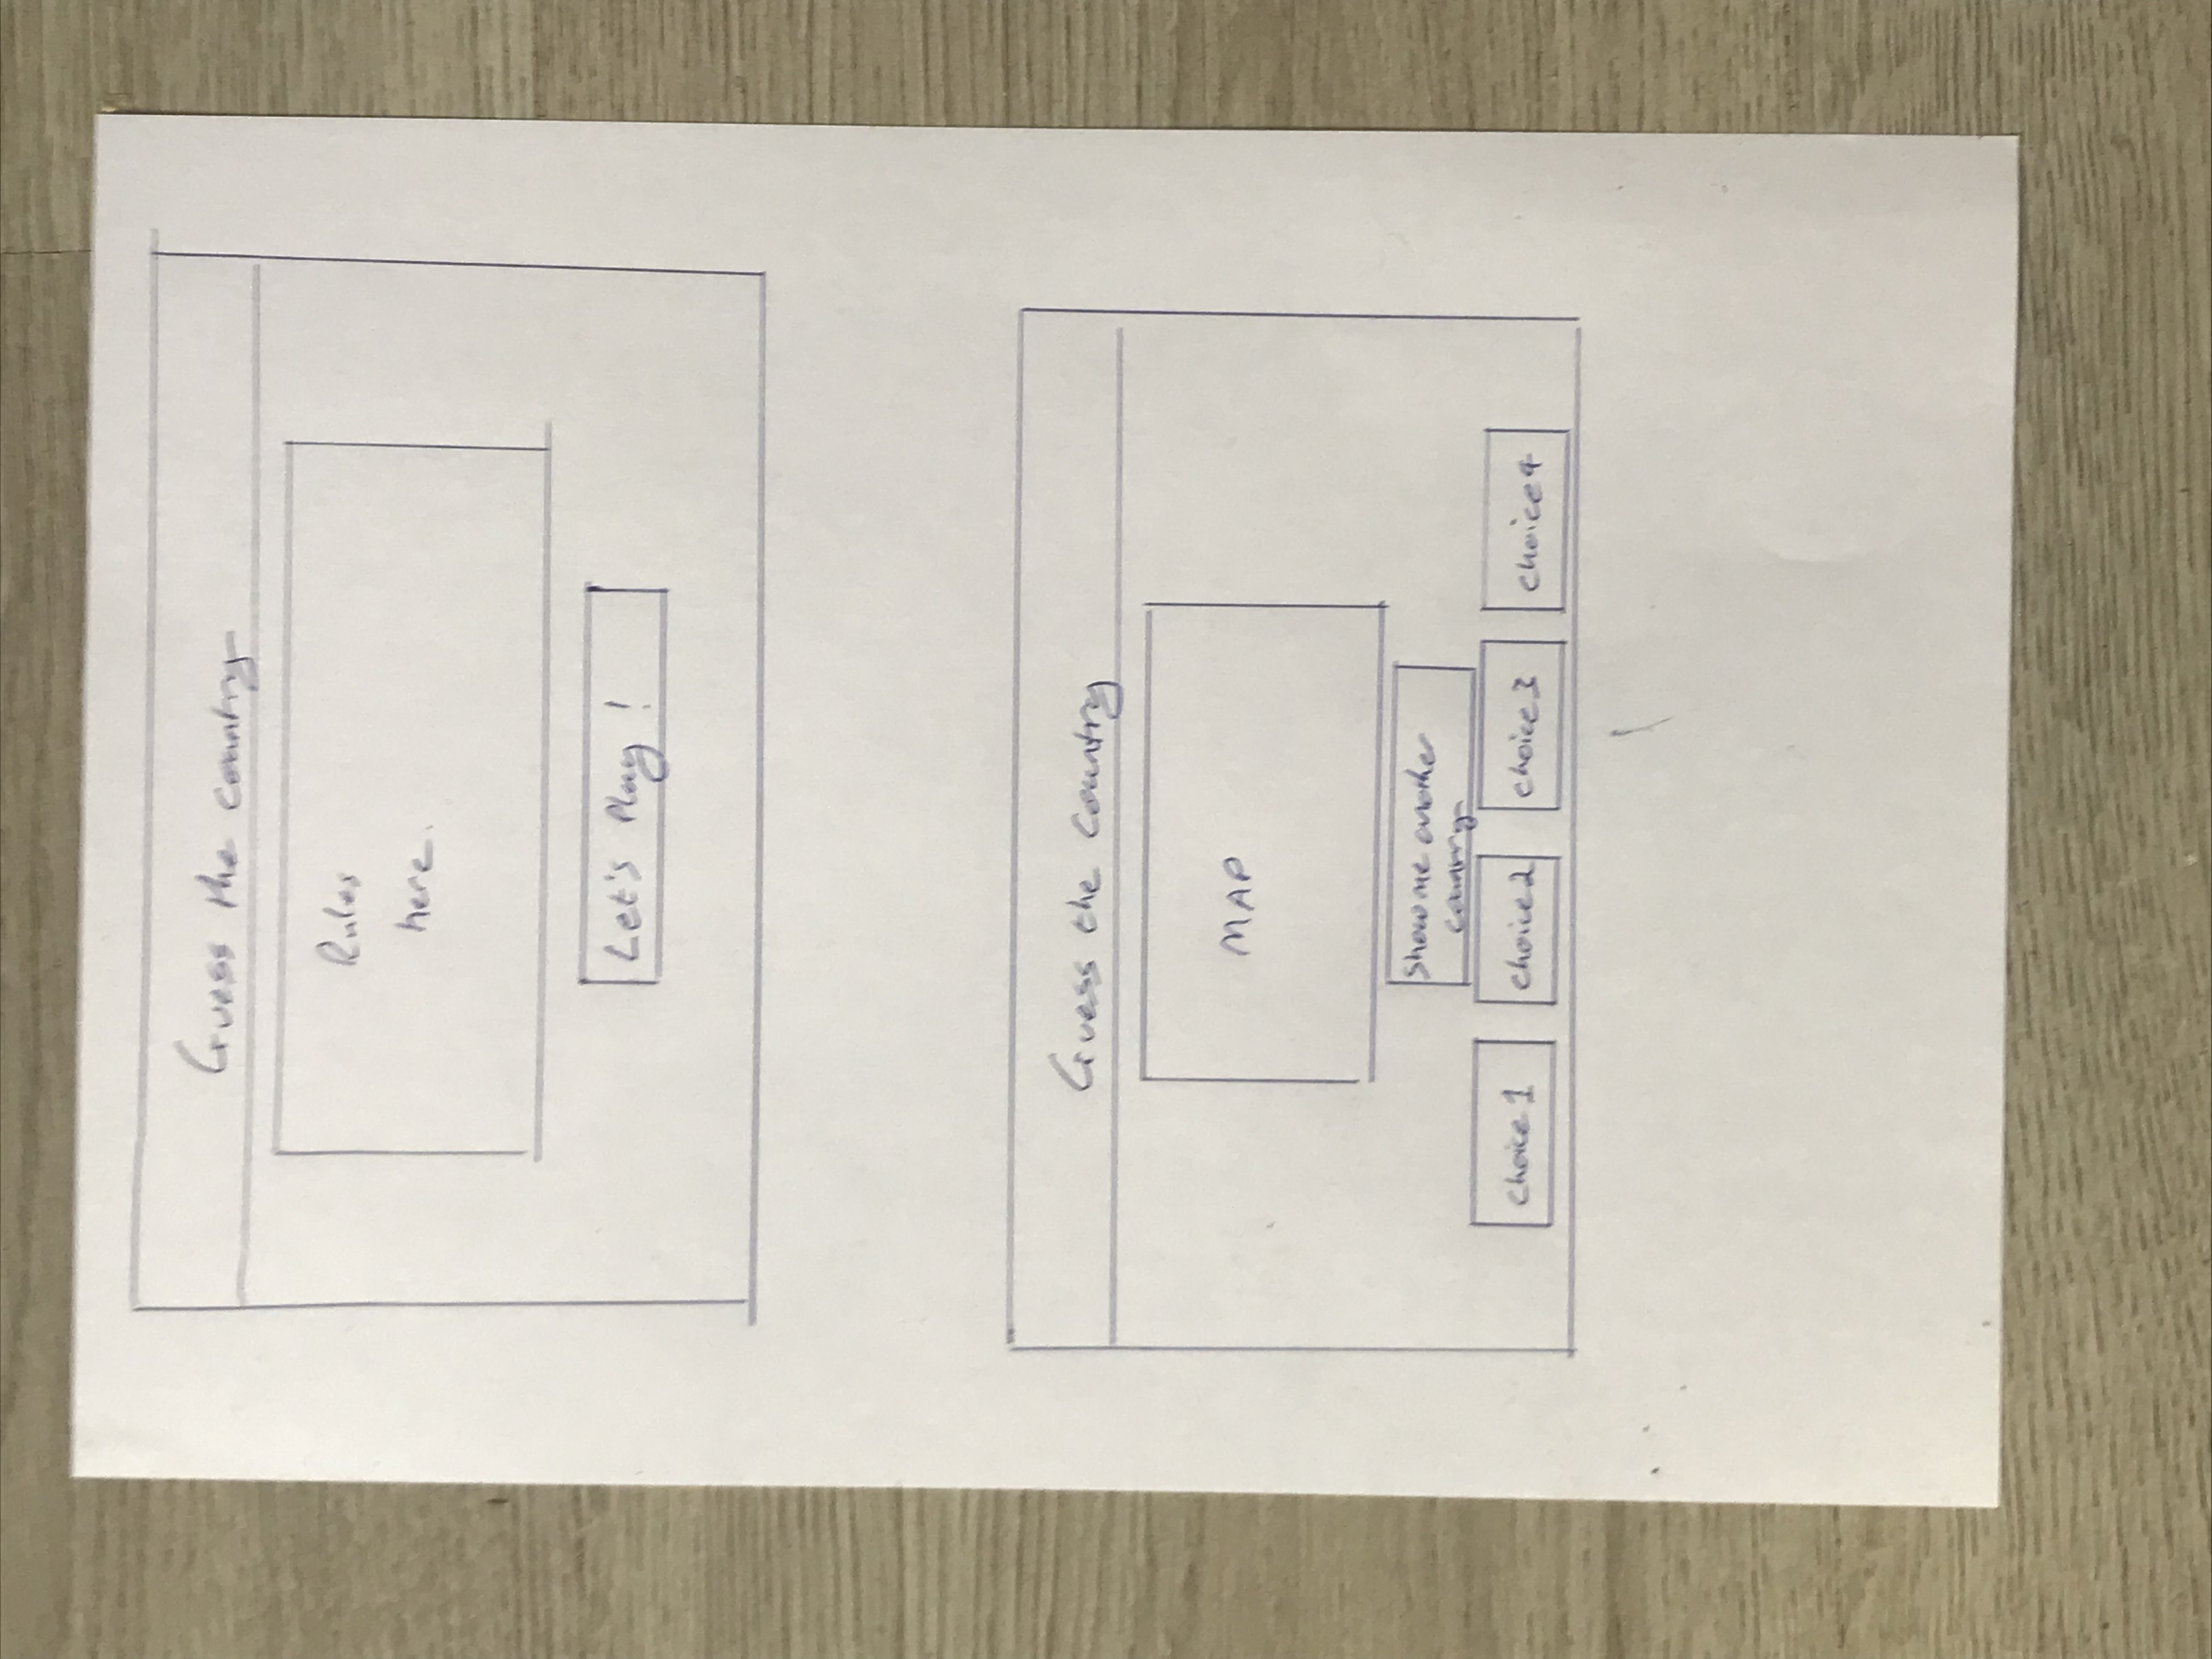 Guess the country
Rules
here.
Let's Play !
Guess the Country
MAP
Show me another
country
choice 1
choice 2
choice 3
choice 4